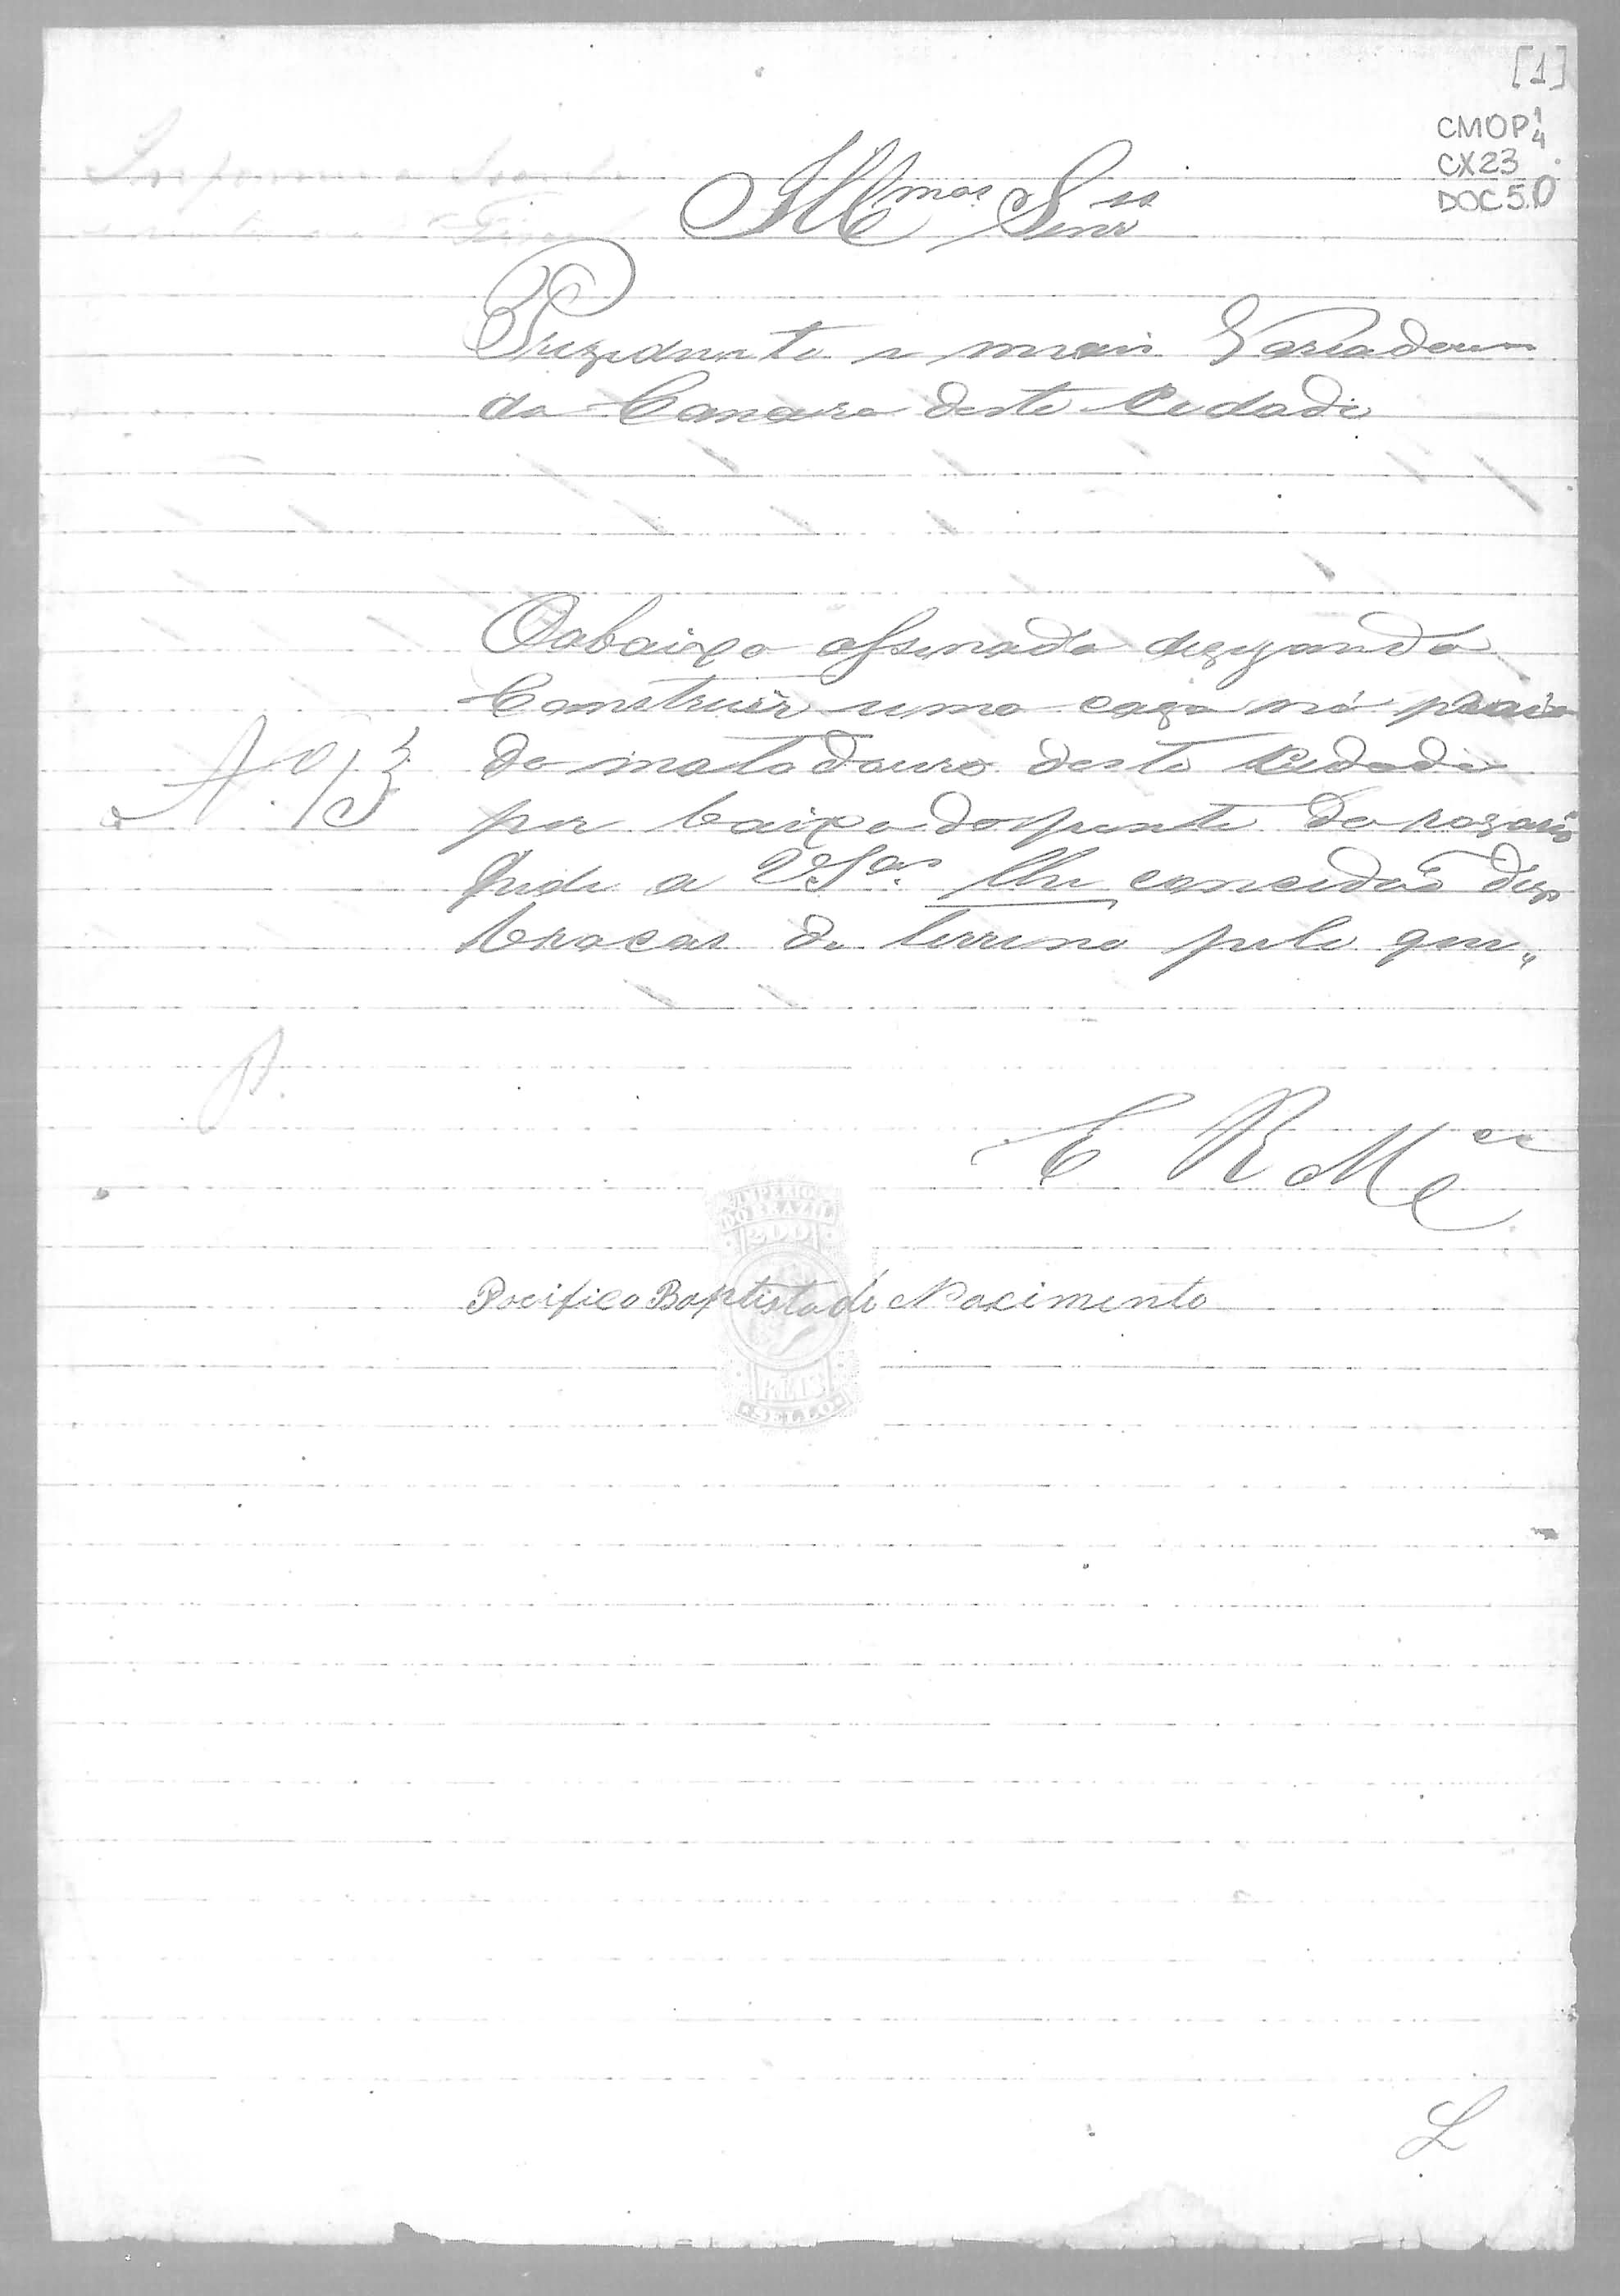 [1]
CMOP 1/4
CX23
DOC 50
Informe o
Fiscal
Illmos Senrs
Prezidente e mais Variadores
da Camara desta Cidade
O abaixo assinado dezejando
Construir uma caza na praia
do matadouro desta Cidade
por baixo da ponte do rozario
Pede a V.Sas. lhe concedão dez
bracas de terreno pelo que„
N.º 13
E R Mce
IMPERIO
DO BRAZIL
200
Pacifico Baptista do Nascimento
REIS
SELLO